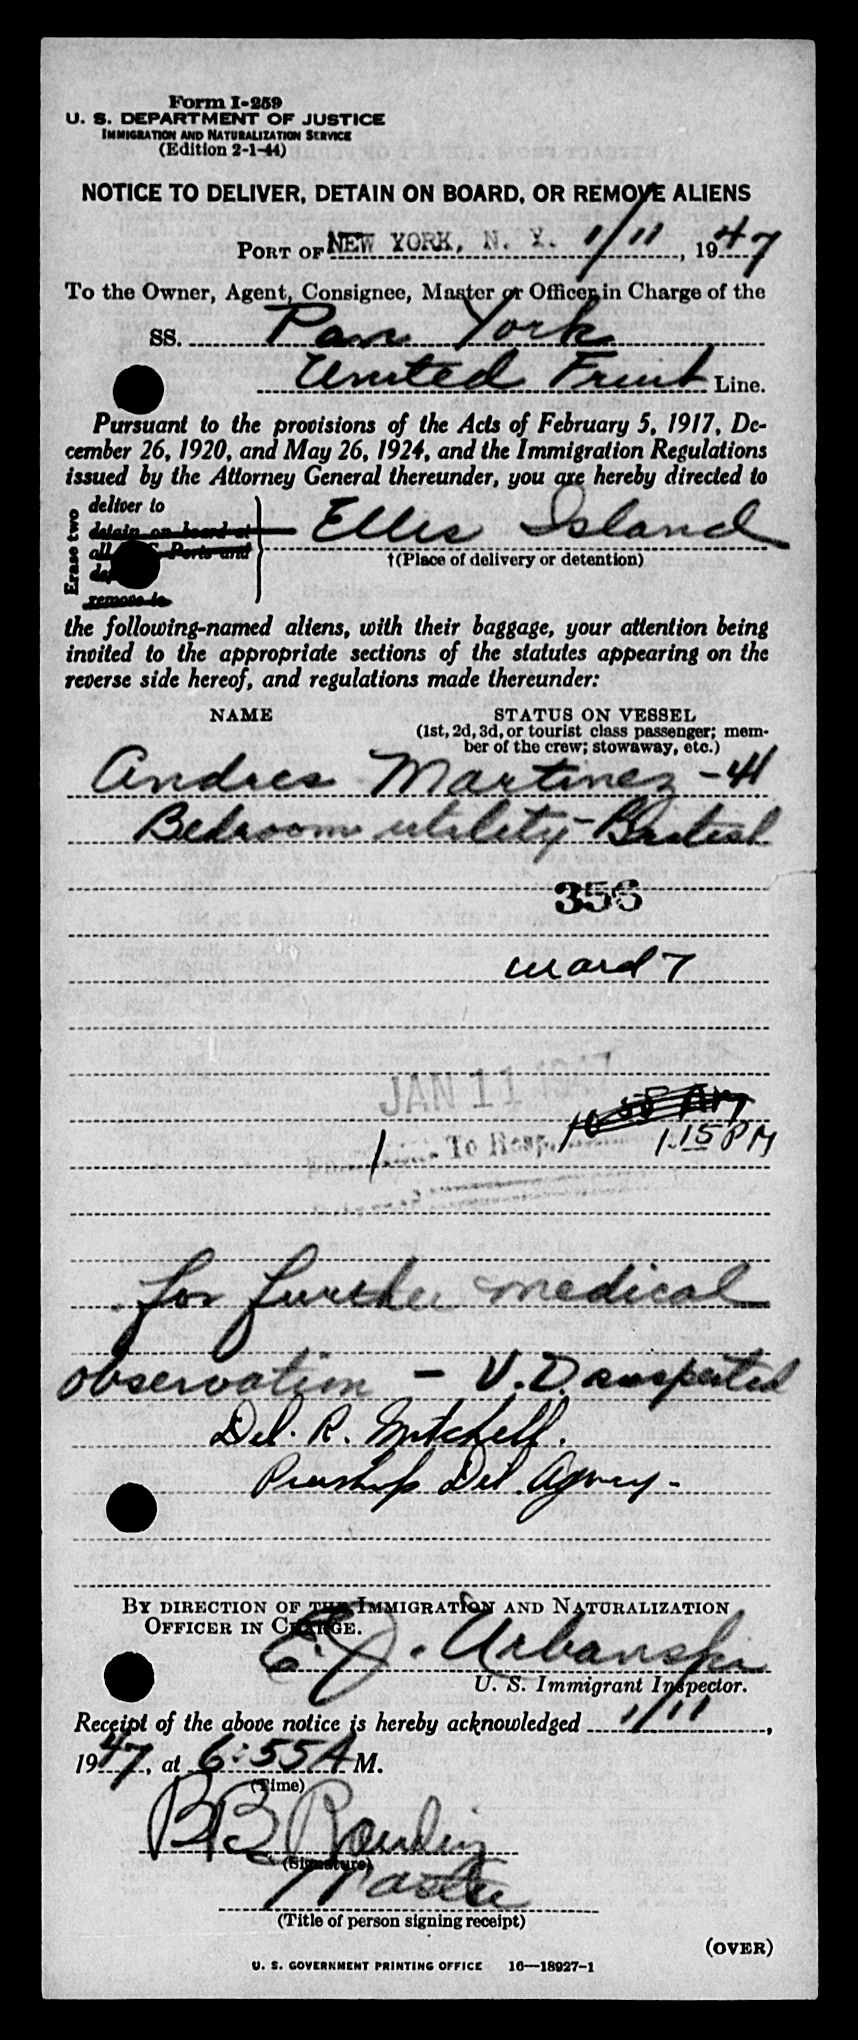 Form I-259
U. S. DEPARTMENT OF JUSTICE
IMMIGRATION AND NATURALIZATION SERVICE
(Edition 2-1-44)
NOTICE TO DELIVER, DETAIN ON BOARD, OR REMOVE ALIENS
PORT OF NEW YORK, N. Y. 1/11, 1947
To the Owner, Agent, Consignee, Master or Officer in Charge of the
SS. Pan York
United Fruit Line.
Pursuant to the provisions of the Acts of February 5, 1917, De-
cember 26, 1920, and May 26, 1924, and the Immigration Regulations
issued by the Attorney General thereunder, you are hereby directed to
Erase two
deliver to
detain on board at
all U. S. Ports and
remove to
Ellis Island
†(Place of delivery or detention)
the following-named aliens, with their baggage, your attention being
invited to the appropriate sections of the statutes appearing on the
reverse side hereof, and regulations made thereunder:
NAME STATUS ON VESSEL
(1st, 2d, 3d, or tourist class passenger; mem-
ber of the crew; stowaway, etc.)
Andres Martinez - 41
Bedroom utility - British
356
ward 7
JAN 11 1947
10 55 AM
1.15 PM
1 To Hosp.
for further medical
observation - V.D. suspected
Del. R. Mitchell.
Del. Agency -
BY DIRECTION OF THE IMMIGRATION AND NATURALIZATION
OFFICER IN CHARGE.
E. J. Urbanski
U. S. Immigrant Inspector.
Receipt of the above notice is hereby acknowledged 1/11,
1947, at 6:55 A M.
(Time)
BB
(Signature)
Master
(Title of person signing receipt)
(OVER)
U. S. GOVERNMENT PRINTING OFFICE 16—18927-1